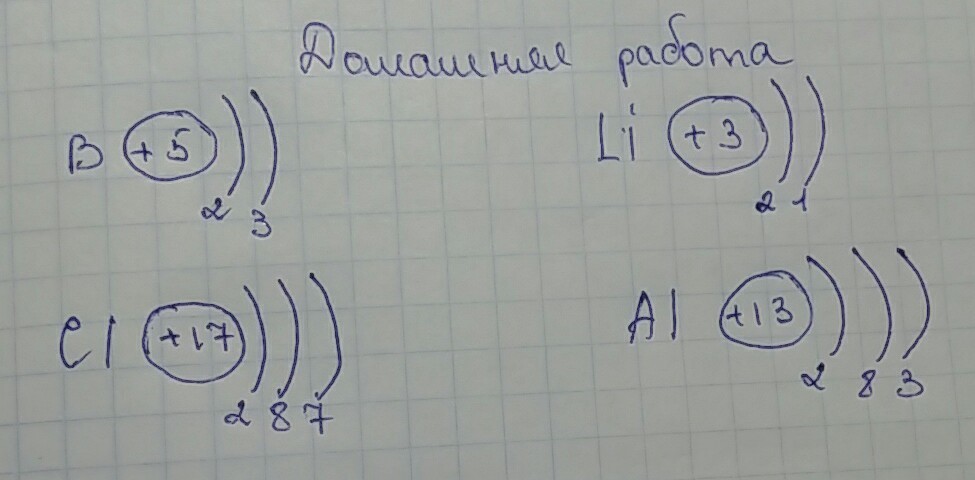 Домашняя работа
B +5 ) ) Li +3 ) )
2 3 2 1
Cl +17 ) ) ) Al +13 ) ) )
2 8 7 2 8 3